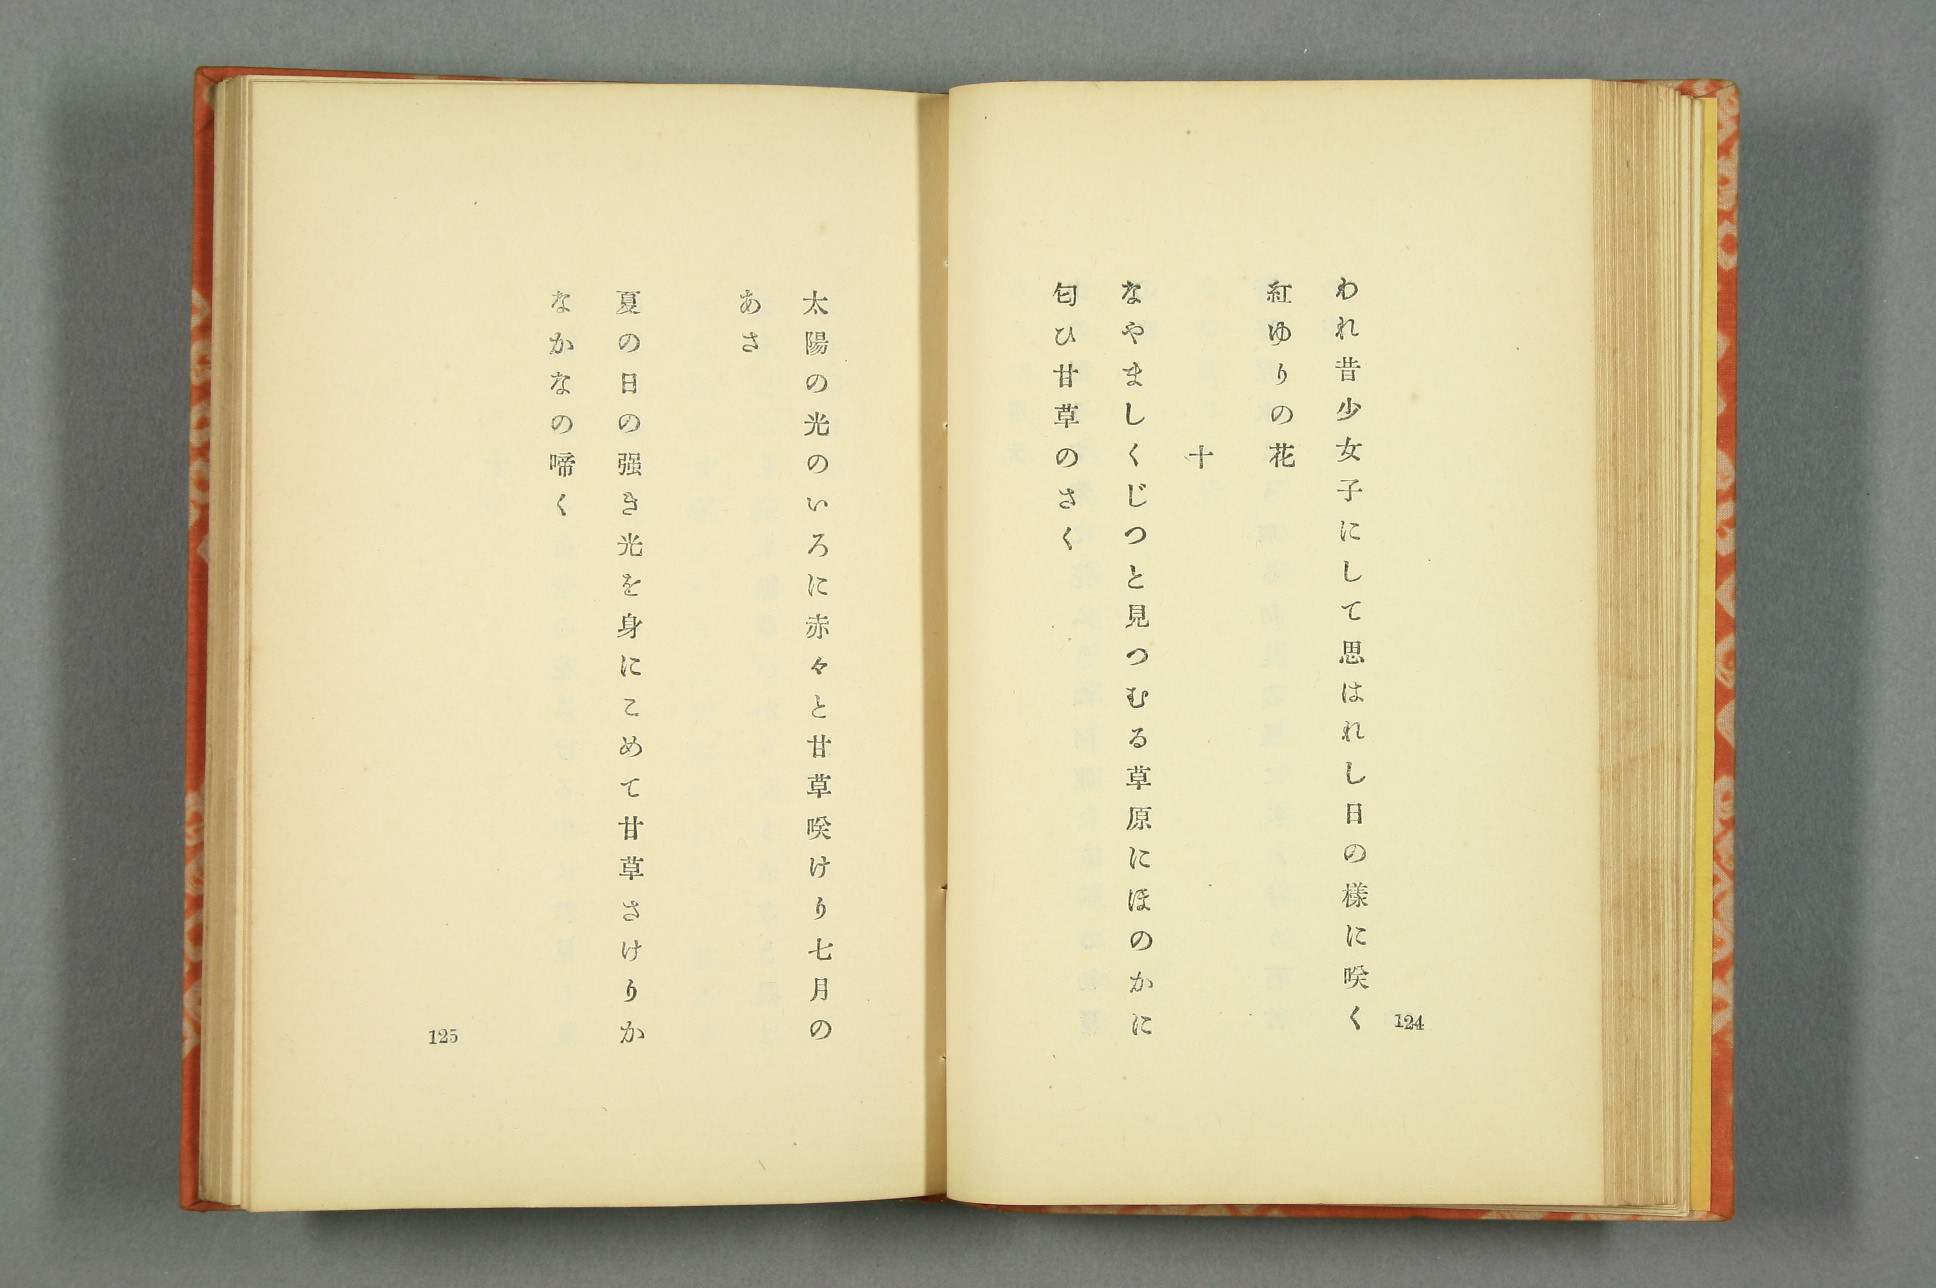 われ昔少女子にして思はれし日の様に咲く
紅ゆりの花
十
なやましくじつと見つむる草原にほのかに
匂ひ甘草のさく
124
太陽の光のいろに赤々と甘草咲けり七月の
あさ
夏の日の强き光を身にこめて甘草さけりか
なかなの啼く
125